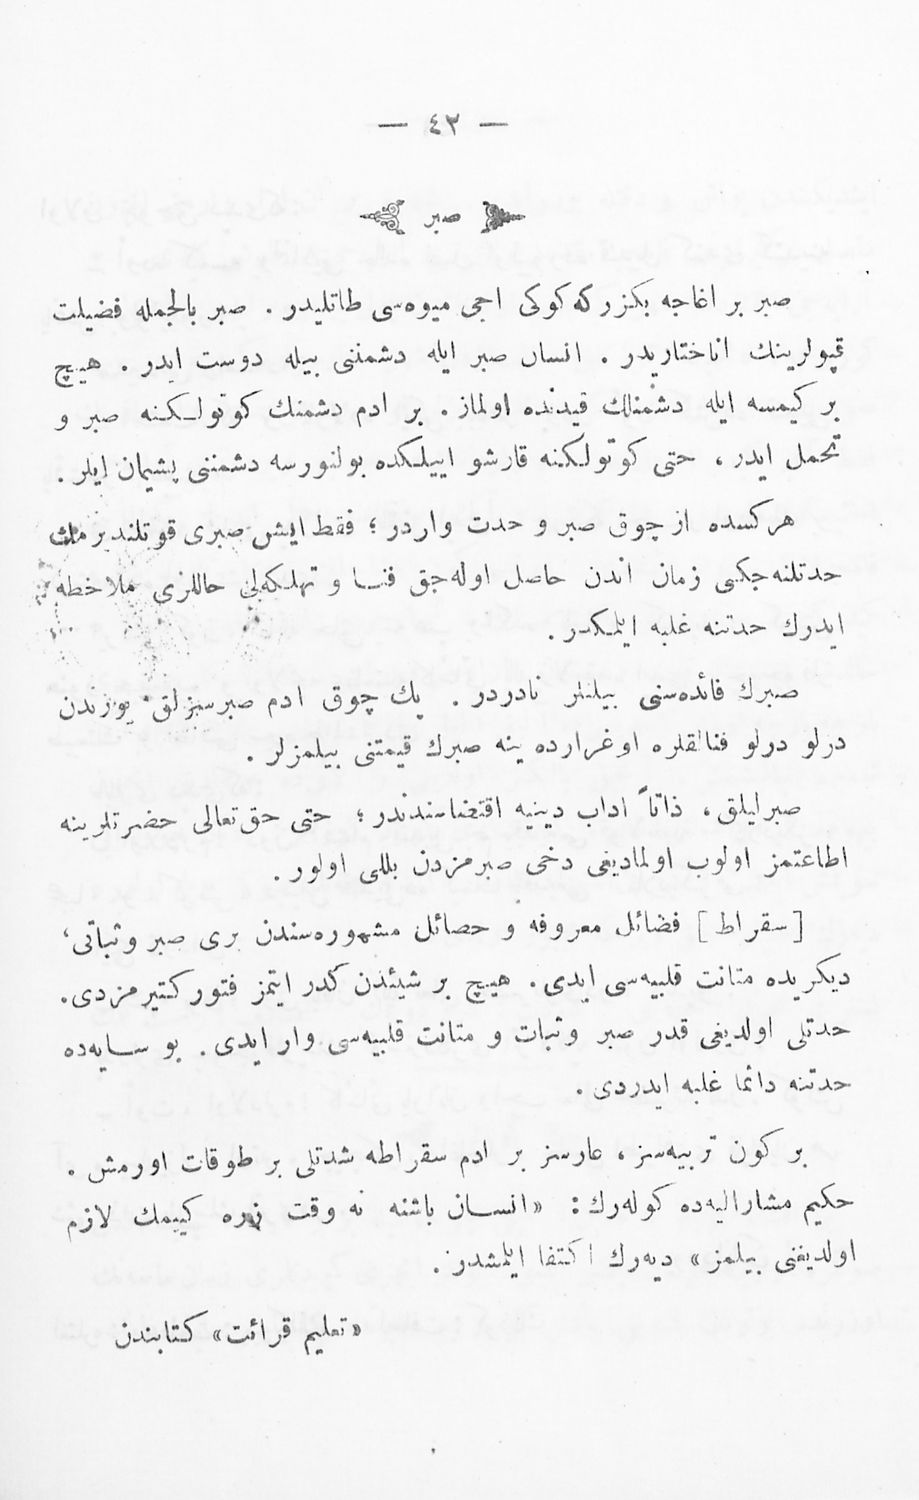 — ٤٣ —
صبر
صبر بر اغاجه بكزر كه كوكى اجى ميوه‌سى طاتليدر . صبر بالجمله فضيلت
قپولرينك اناختاريدر . انسان صبر ايله دشمننى بيله دوست ايدر . هيچ
بر كيمسه ايله دشمنلك قيدنده اولماز . بر ادم دشمنك كوتولكنه صبر و
تحمل ايدر ، حتى كوتولكنه قارشو اييلكده بولنورسه دشمننى پشيمان ايلر .
هركسده از چوق صبر و حدت واردر ؛ فقط ايش صبرى قوتلندير مك
حدتلنه‌جكى زمان اندن حاصل اوله‌جق فنا و تهلكه‌لى حاللرى ملاحظه
ايدرك حدتنه غلبه ايتمكدر .
صبرك فائده‌سنى بيلنلر نادردر . پك چوق ادم صبرسزلق يوزندن
درلو درلو فنالقلره اوغرارده ينه صبرك قيمتنى بيلمزلر .
صبرليلق ، ذاتاً اداب دينيه اقتضاسندندر ؛ حتى حق تعالى حضرتلرينه
اطاعتمز اولوب اولماديغى دخى صبرمزدن بللى اولور .
[ سقراط ] فضائل معروفه و خصائل مشهوره‌سندن برى صبر وثباتى ،
ديكريده متانت قلبيه‌سى ايدى . هيچ بر شيئدن كدر ايتمز فتور كتيرمزدى .
حدتلى اولديغى قدر صبر وثبات و متانت قلبيه‌سى وار ايدى . بو سايه‌ده
حدتنه دائما غلبه ايدردى .
بر كون تربيه‌سز ، عارسز بر ادم سقراطه شدتلى بر طوقات اورمش .
حكيم مشاراليه‌ده كوله‌رك : « انسان باشنه نه وقت زره كييمك لازم
اولديغنى بيلمز » ديه‌رك اكتفا ايتمشدر .
« تعليم قرائت » كتابندن